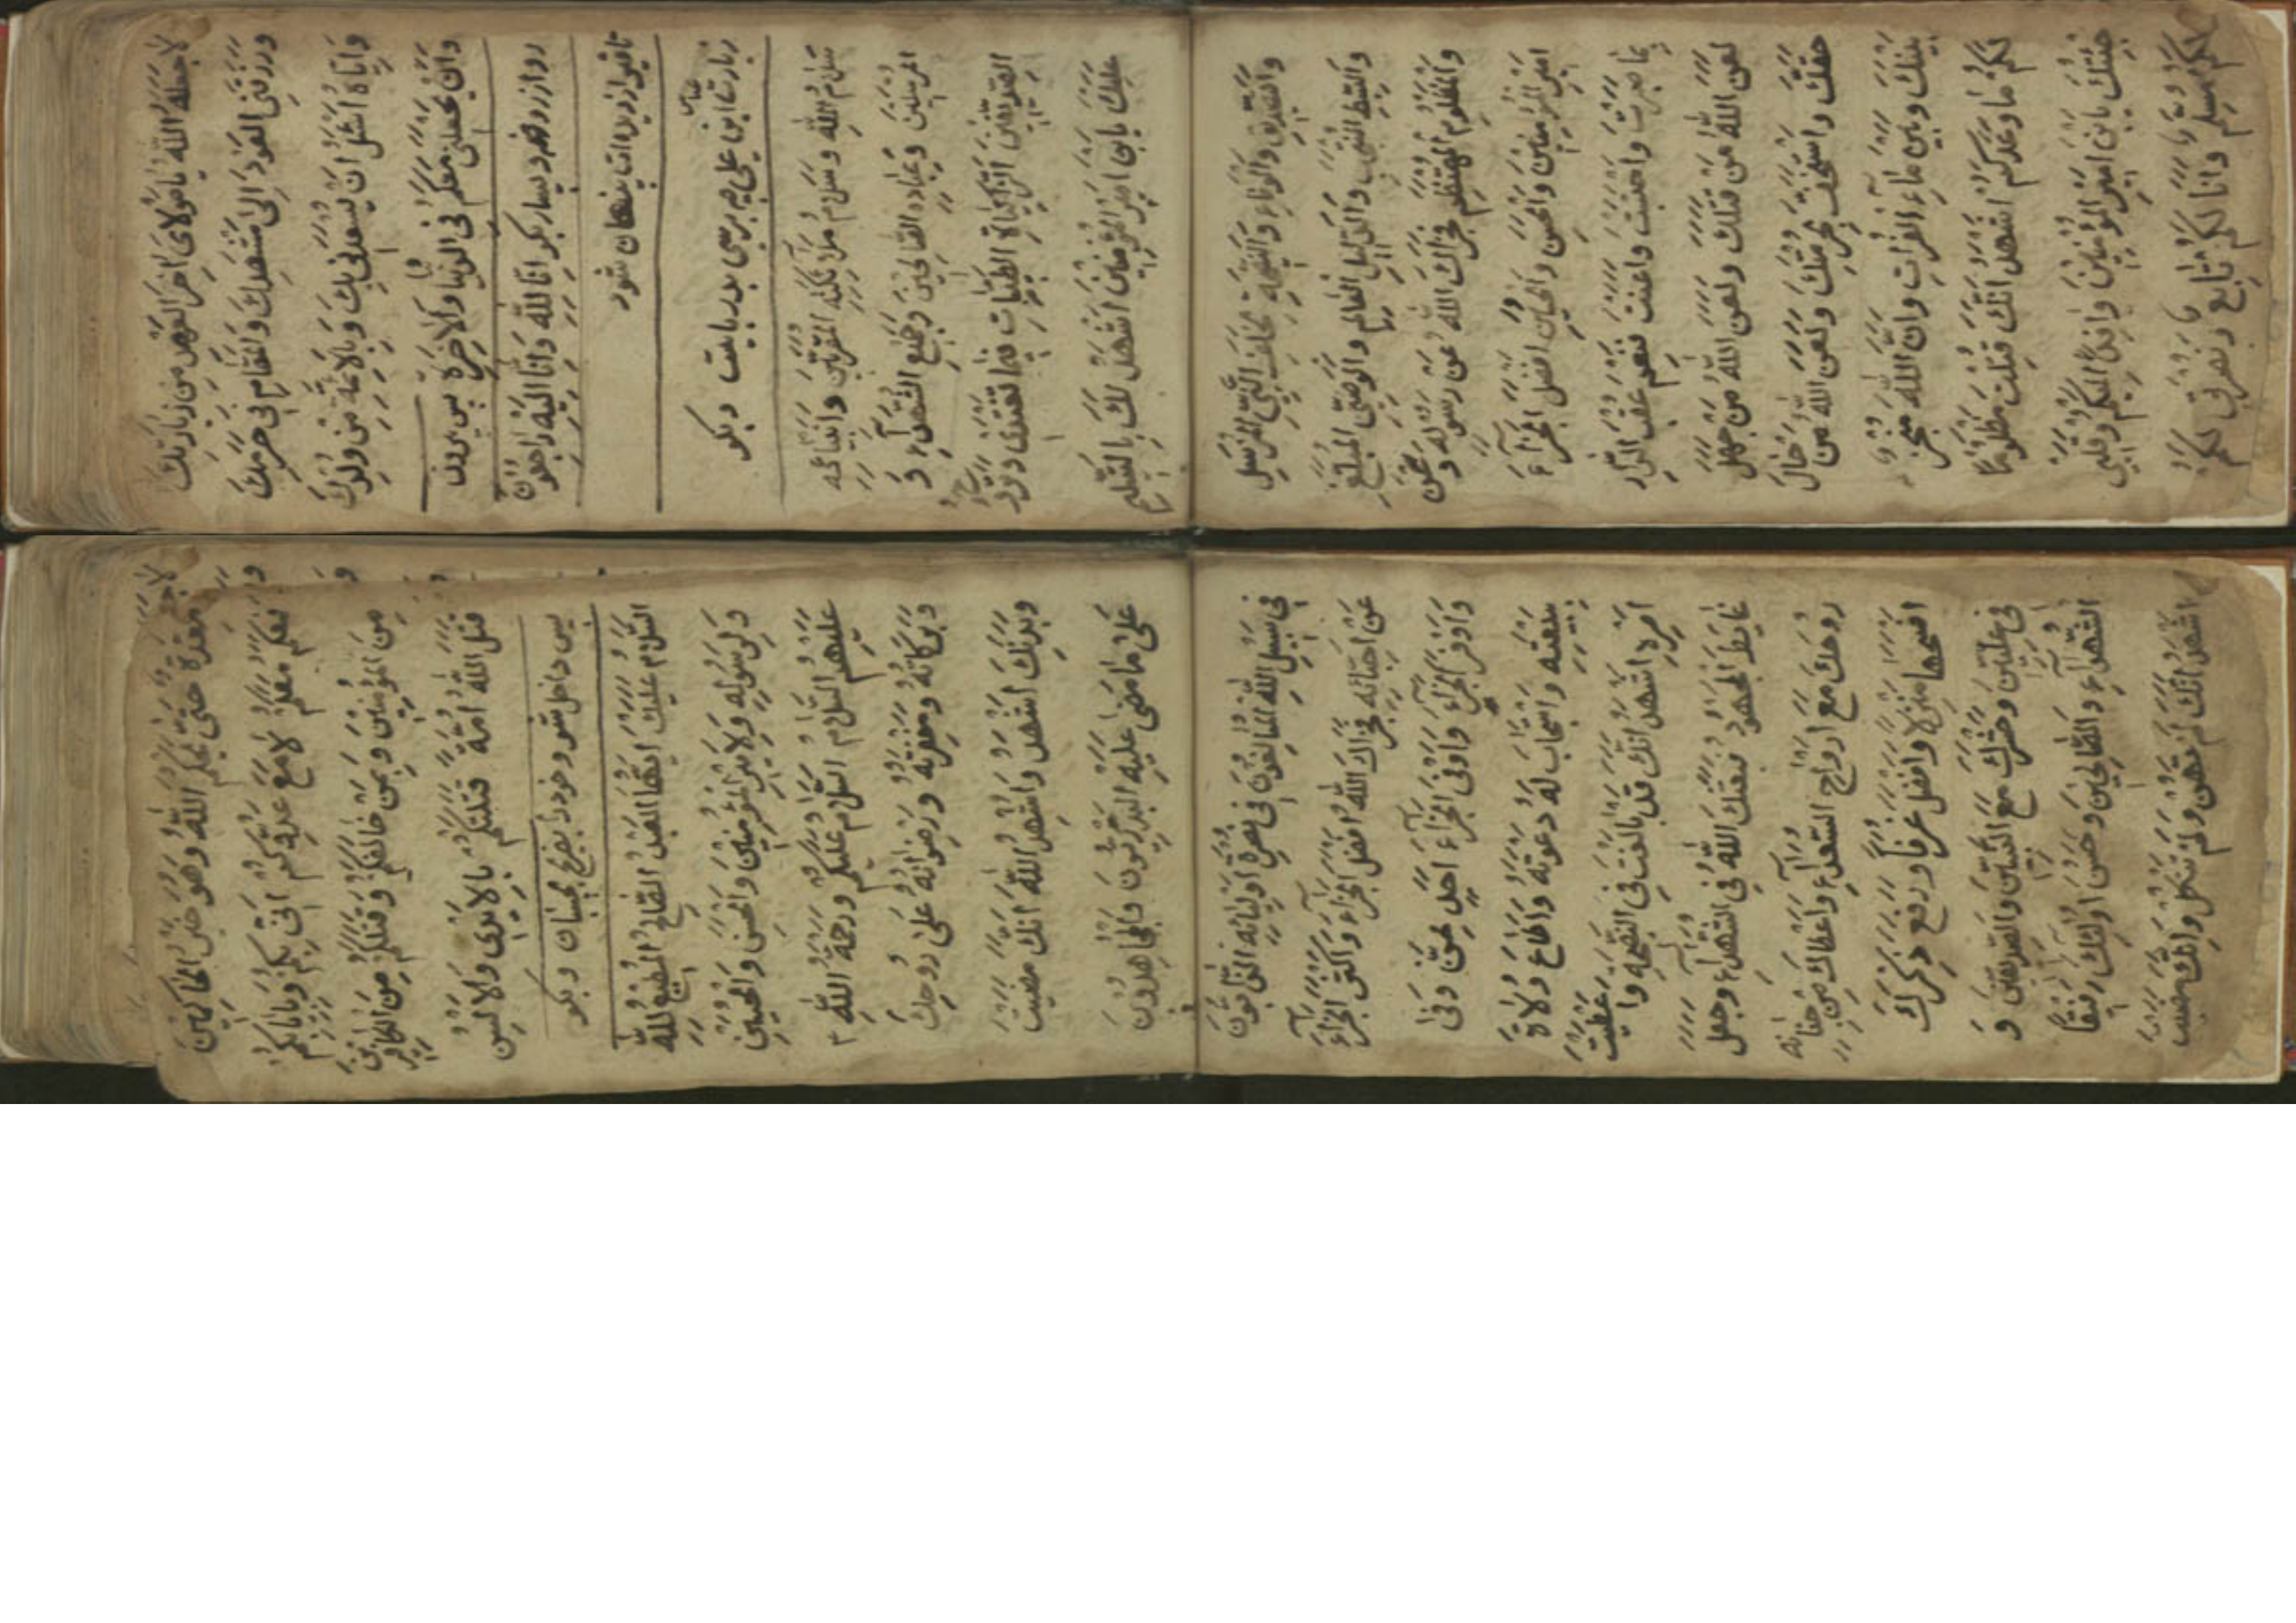 لاجعله الله يا مولاى اخر العهد من زيارتك
ورزقنى العود الى مشهدك والمقام فى حرمك
واياه اسئل ان يسعدنى بك وبالائمة من ولدك
وان يجعلنى معكم فى الدنيا والاخرة پس بيرون
رو از روضه و بسيار بكو انا لله وانا اليه راجعون
تا قبر از ديده ات پنهان شود
زيارت عباس ابن على ع م برسى بدر بايست و بكو
سلام الله وسلام ملائكته المقربين وانبيائه
المرسلين وعباده الصالحين وجميع الشهداء و
الصديقين الزاكيات الطيبات فيما تغتدى وتروح
عليك يا بن امير المؤمنين اشهد لك بالتسليم
والتصديق والوفاء والنصيحة لخلف النبى المرسل
والسبط المنتجب والدليل العالم والوصى المبلغ
والمظلوم المهتضم فجزاك الله عن رسوله وعن
امير المؤمنين والحسن والحسين افضل الجزاء
بما صبرت واحتسبت واعنت فنعم عقبى الدار
لعن الله من قتلك ولعن الله من جهل
حقك واستخف بحرمتك ولعن الله من حال
بينك وبين ماء الفرات وان الله منجز
لكم ما وعدكم اشهد انك قتلت مظلوما
جئتك يا بن امير المؤمنين وافدا اليكم وقلبى
لكم مسلم وانا لكم تابع ونصرتى لكم
معدة حتى يحكم الله وهو خير الحاكمين
فمعكم معكم لا مع عدوكم انى بكم وبايابكم
من المؤمنين وبمن خالفكم وقتلكم من الكافرين
قتل الله امة قتلتكم بالايدى والالسن
پس داخل شو و خود را بضريح بچسبان و بكو
السلام عليك ايها العبد الصالح المطيع لله
ولرسوله ولامير المؤمنين والحسن والحسين
عليهم السلام السلام عليكم ورحمة الله
وبركاته ومغفرته ورضوانه على روحك
وبدنك اشهد واشهد الله انك مضيت
على ما مضى عليه البدريون والمجاهدون
فى سبيل الله المبالغون فى نصرة اوليائه الذابون
عن احبائه فجزاك الله افضل الجزاء واكثر الجزاء
واوفر الجزاء واوفى الجزاء احد ممن وفى
ببيعته واستجاب له دعوته واطاع ولاة
امره اشهد انك قد بالغت فى النصيحة واعطيت
غاية المجهود فبعثك الله فى الشهداء وجعل
روحك مع ارواح السعداء واعطاك من جنانه
افسحها منزلا وافضل غرفا ورفع ذكرك
فى عليين وحشرك مع النبيين والصديقين و
الشهداء والصالحين وحسن اولئك رفيقا
اشهد انك لم تهن ولم تنكل وانك مضيت